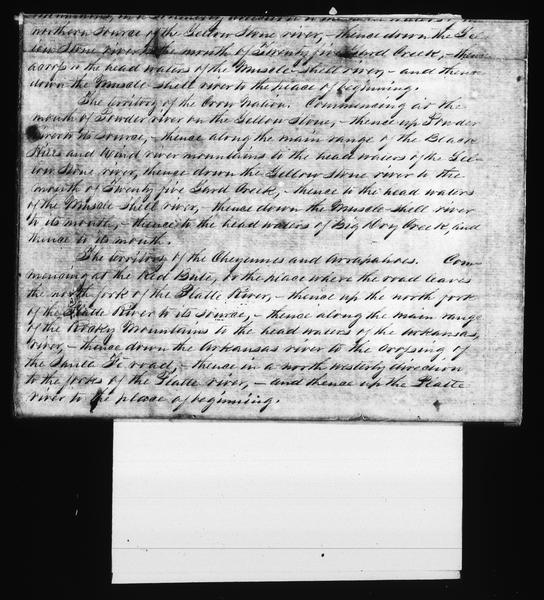 northern source of the Yellow Stone river, – thence down the Yel-
low Stone river to the mouth of Twenty five Yard Creek, – thence
across to the head waters of the Muscle-shell river, – and thence
down the Muscle-shell river to the place of beginning.
The territory of the Crow Nation. Commencing at the
mouth of Powder river on the Yellow Stone, – thence up Powder
river to its source, – thence along the main range of the Black
Hills and Wind river mountains to the head waters of the Yel-
low Stone river, thence down the Yellow Stone river to the
mouth of Twenty five Yard Creek, – thence to the head waters
of the Muscle-shell river, – thence down the Muscle-shell river
to its mouth, – thence to the head waters of Big Dry Creek, and
thence to its mouth.
The territory of the Cheyennes and Arrapahoes. Com-
mencing at the Red Bute, or the place where the road leaves
the north fork of the Platte River, – thence up the north fork
of the Platte River to its source, – thence along the main range
of the Rocky Mountains to the head waters of the Arkansas
river, – thence down the Arkansas river to the crossing of
the Santa Fe road, – thence in a north westerly direction
to the forks of the Platte river, – and thence up the Platte
river to the place of beginning.